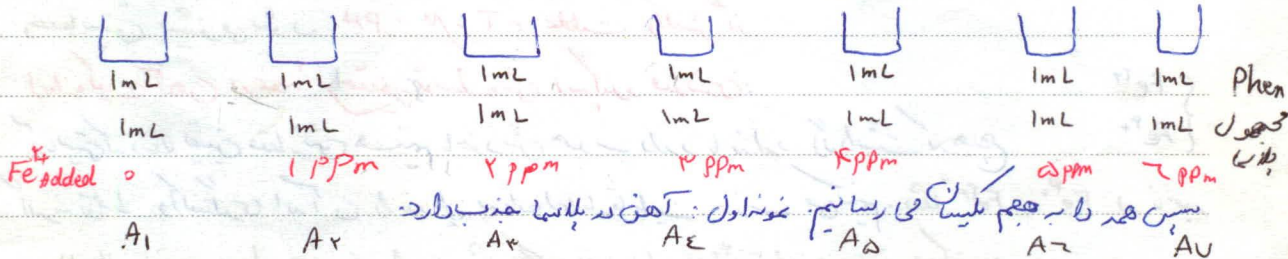 1mL 1mL 1mL 1mL 1mL 1mL 1mL Phen
1mL 1mL 1mL 1mL 1mL 1mL 1mL مجهول پلاسما
Fe²⁺ Added ۰ ۱ppm ۲ppm ۳ppm ۴ppm ۵ppm ۶ppm
سپس همه را به حجم یکسان می رسانیم. نمونه اول: آهن در پلاسما جذب دارد.
A۱ A۲ A۳ A٤ A۵ A۶ A۷